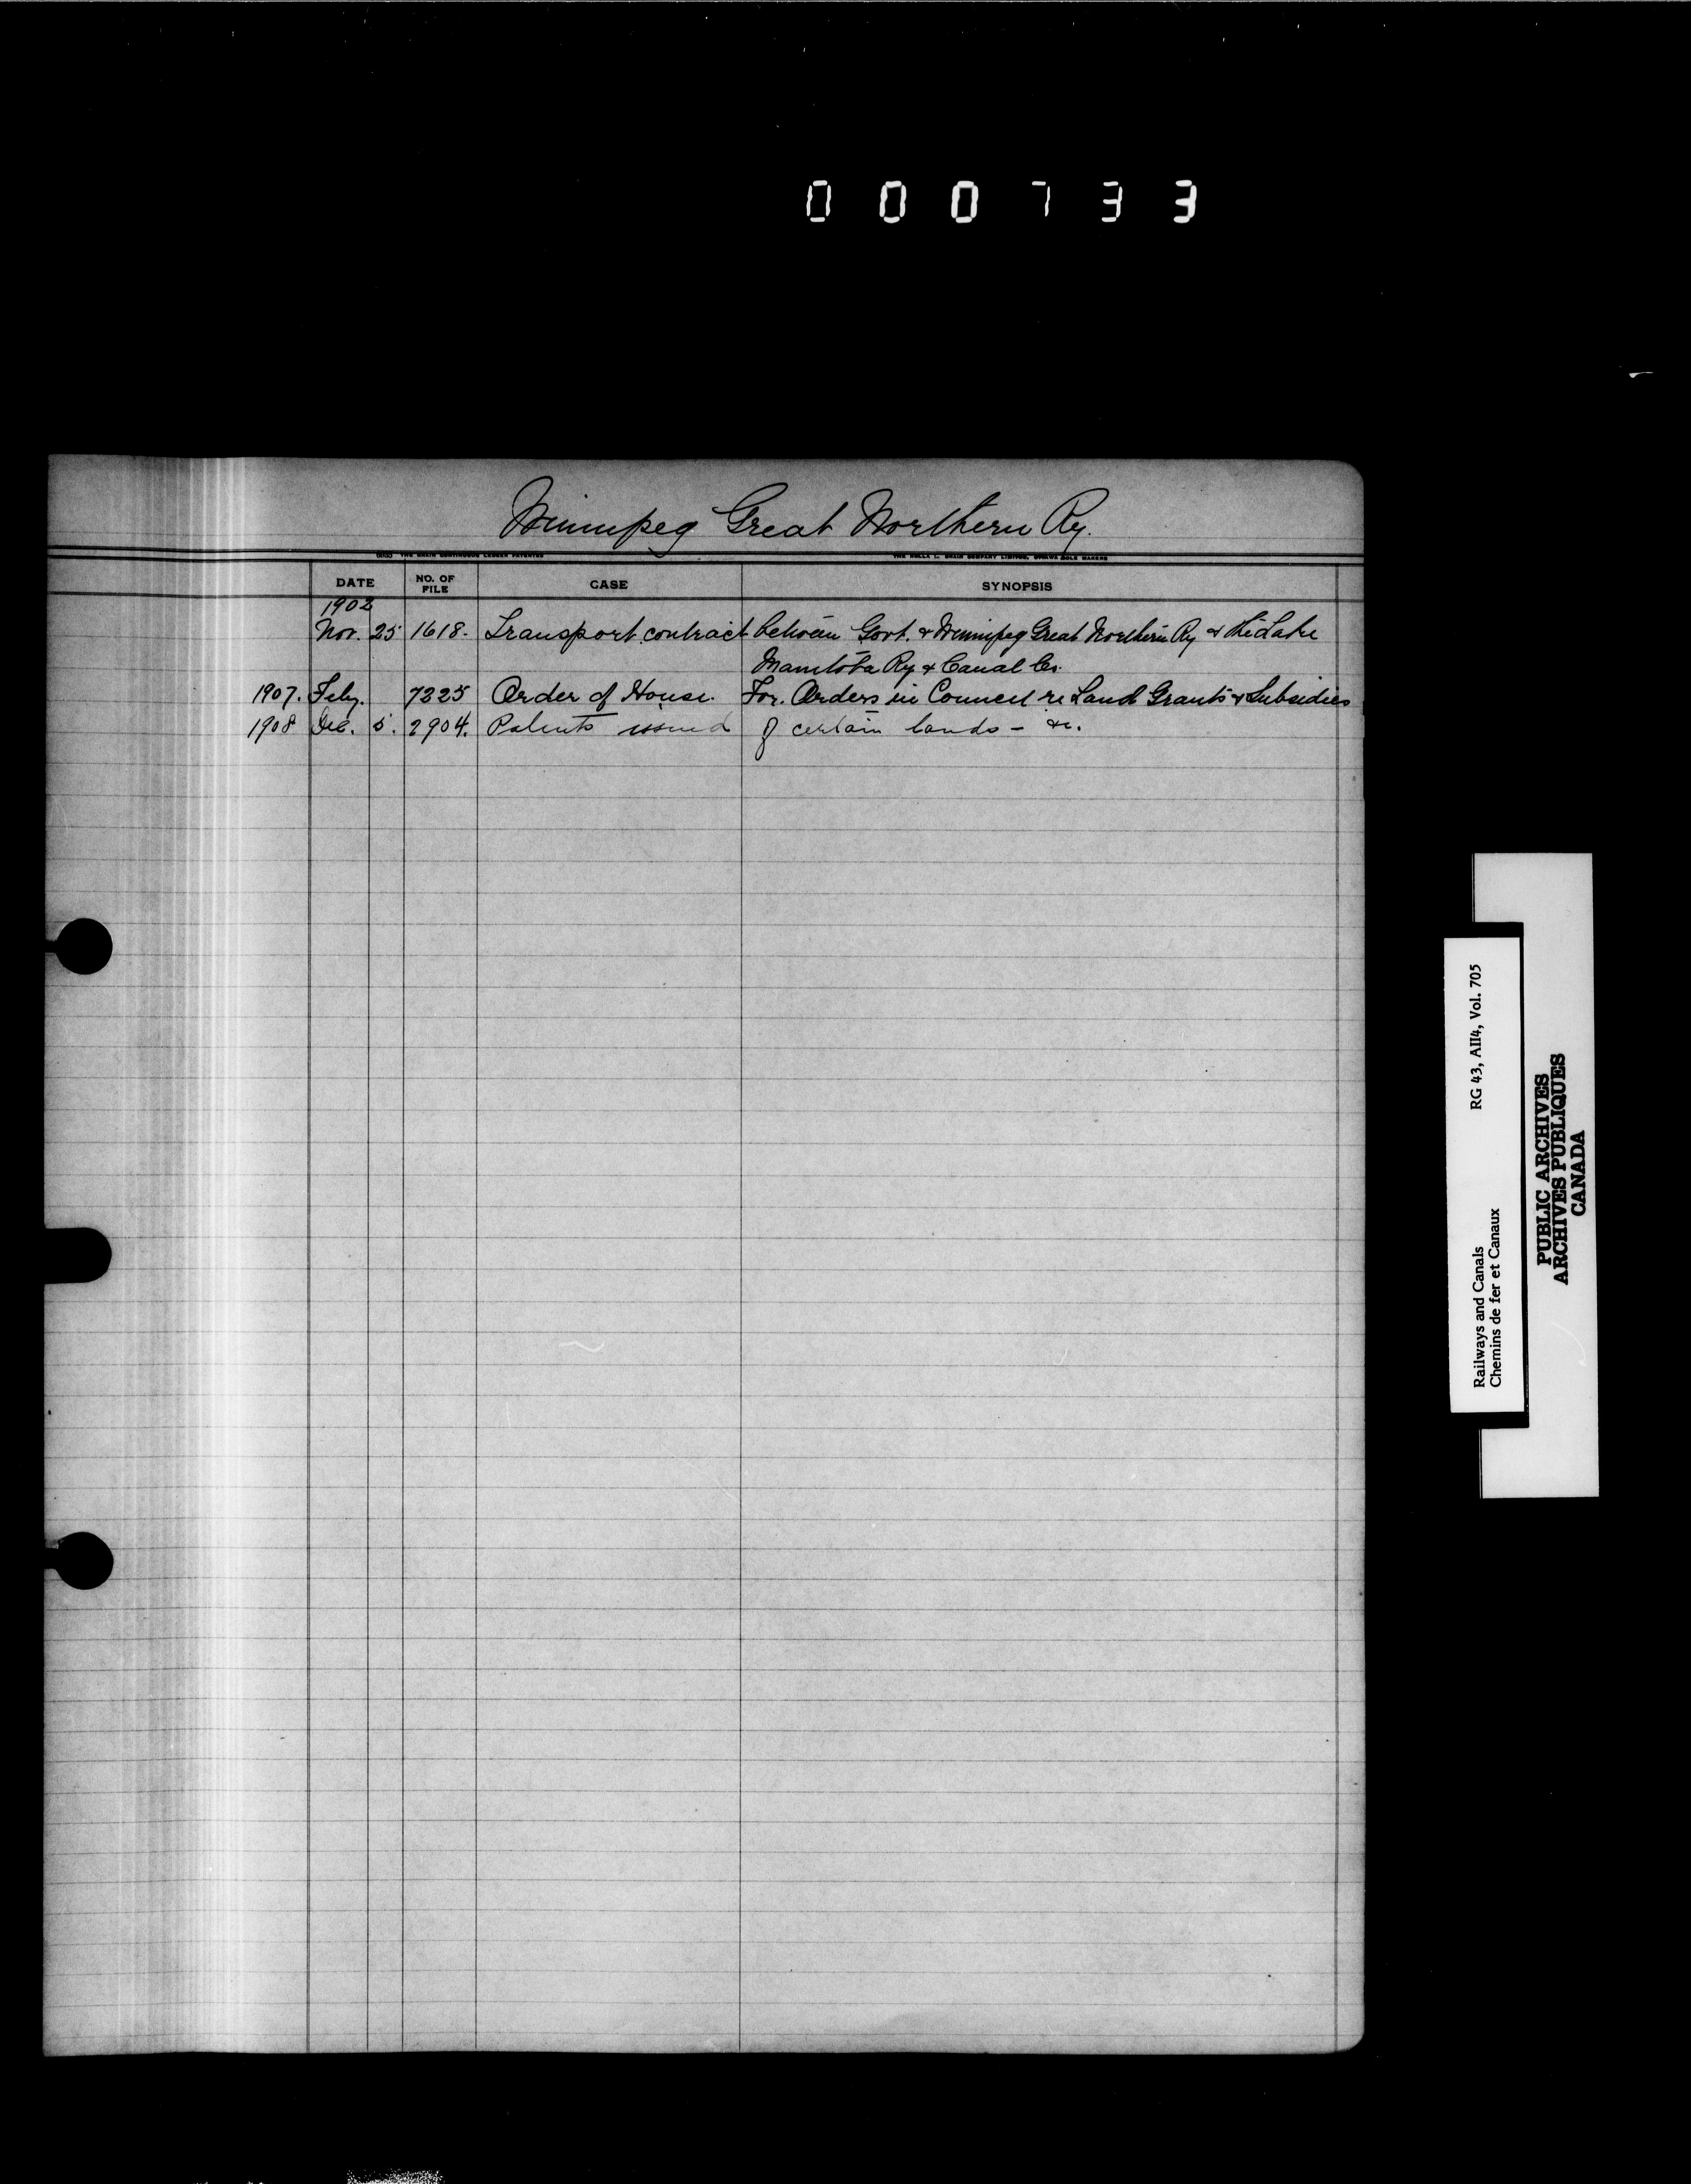 000733
Winnipeg Great Northern Ry.
THE CRAIN CONTINUOUS LEDGER PATENTED THE ROLLA L. CRAIN COMPANY LIMITED, OTTAWA SOLE MAKERS
DATE NO. OF FILE CASE SYNOPSIS
1902
Nov. 25 1618. Transport contract between Govt. & Winnipeg Great Northern Ry & the Lake
Manitoba Ry & Canal Co.
1907. Feby. 7225 Order of House. For. Orders in Council re Land Grants & Subsidies
1908 Dec. 5. 2904. Patents issued of certain lands - &c.
RG 43, AII4, Vol. 705
Railways and Canals
Chemins de fer et Canaux
PUBLIC ARCHIVES
ARCHIVES PUBLIQUES
CANADA